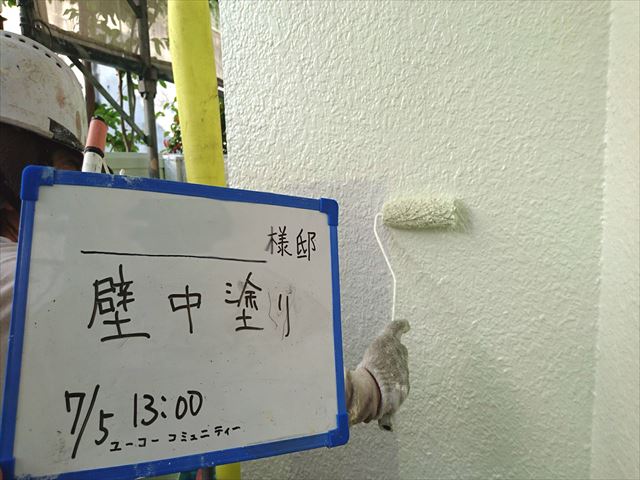 様邸
壁中塗り
7/5 13:00
ユーコーコミュニティー